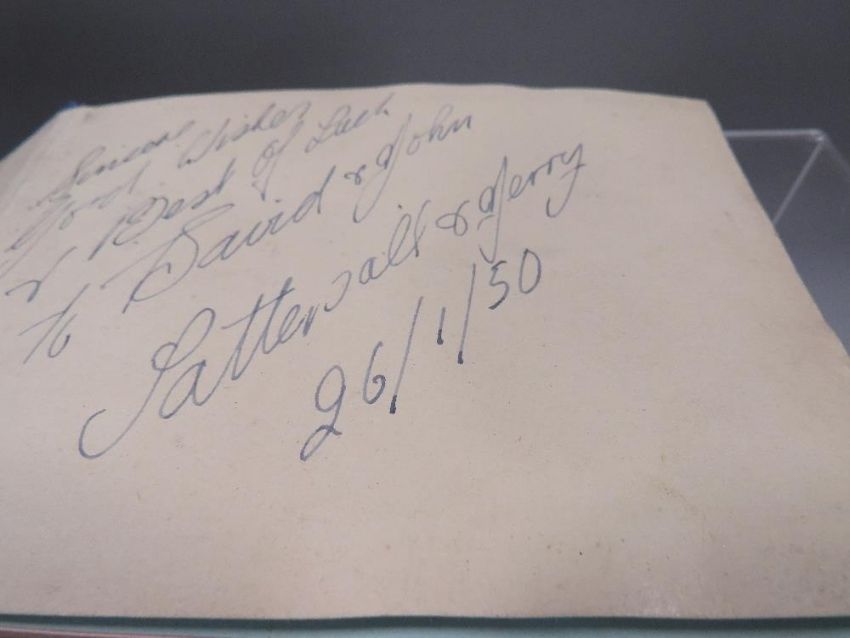 Sincere
Good Wishes
& Best of Luck
To David & John
Tattersall & Jerry
26/1/50